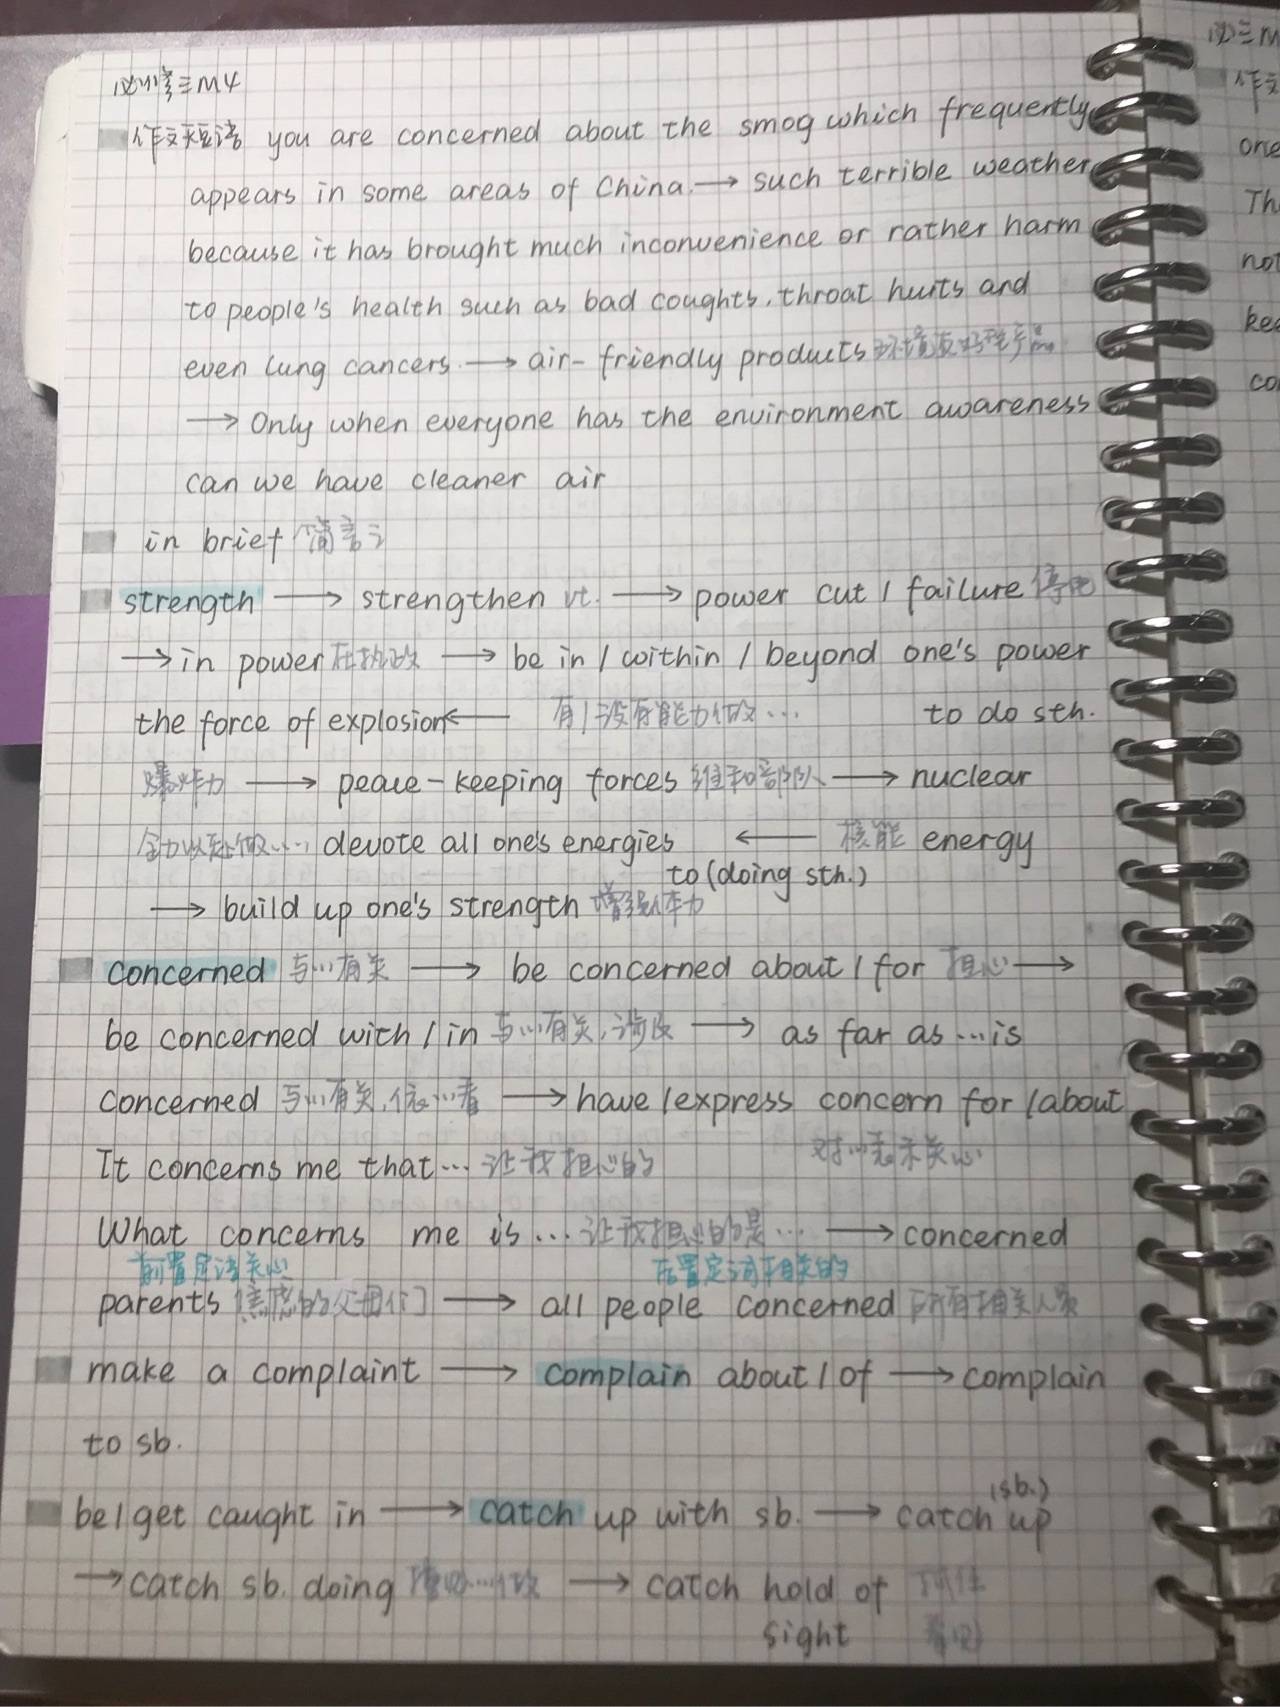 必修三M4
作文短语 you are concerned about the smog which frequently
appears in some areas of China. → such terrible weather
because it has brought much inconvenience or rather harm
to people's health such as bad coughts, throat hurts and
even lung cancers. → air-friendly products 环境友好型产品
→ Only when everyone has the environment awareness
can we have cleaner air
in brief 简言之
strength → strengthen vt. → power cut / failure 停电
→ in power 在执政 → be in / within / beyond one's power
the force of explosion ← 有/没有能力做… to do sth.
爆炸力 → peace-keeping forces 维和部队 → nuclear
全力以赴做… devote all one's energies ← 核能 energy
to (doing sth.)
→ build up one's strength 增强体力
concerned 与…有关 → be concerned about / for 担心 →
be concerned with / in 与…有关,涉及 → as far as … is
concerned 与…有关,依…看 → have /express concern for /about
It concerns me that… 让我担心的 对…表示关心
What concerns me is … 让我担心的是… → concerned
前置定语关心 后置定语相关的
parents 焦虑的父母们 → all people concerned 所有相关人员
make a complaint → complain about / of → complain
to sb.
(sb.)
be/get caught in → catch up with sb. → catch up
→ catch sb. doing …做 → catch hold of 抓住
sight 看见
必三M
作文
one
Th
not
kee
co